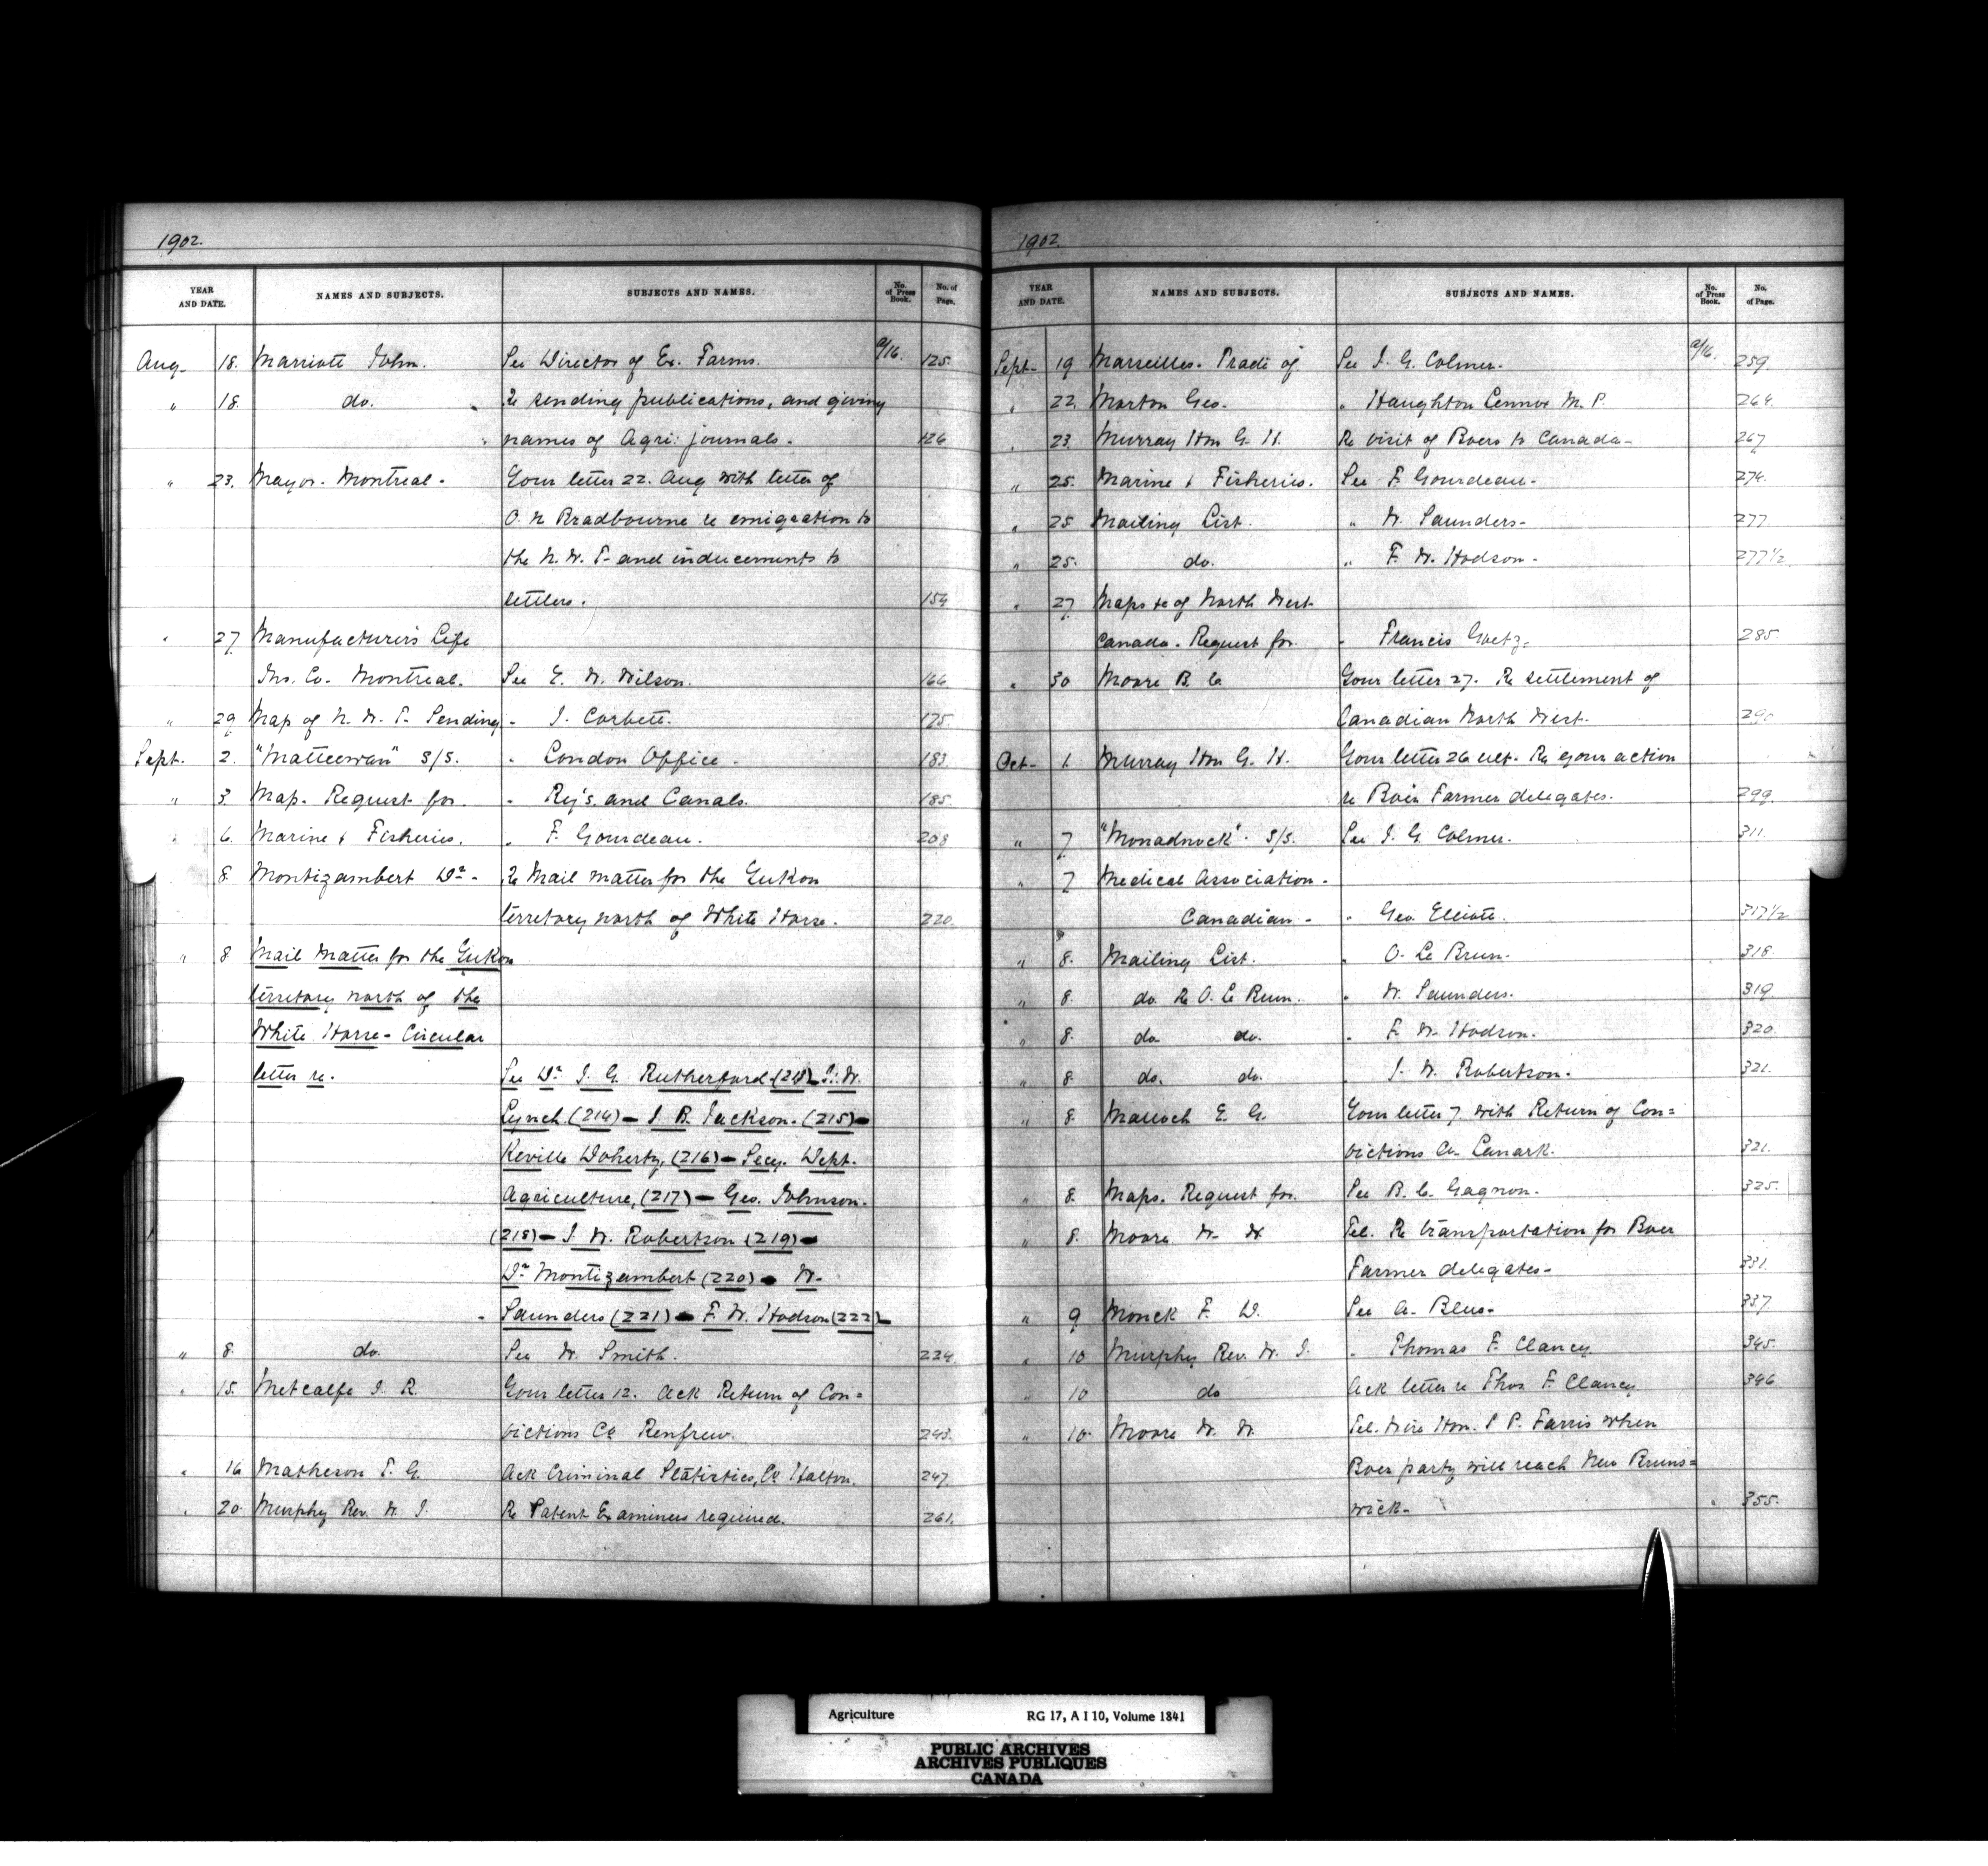 1902.
YEAR AND DATE. NAMES AND SUBJECTS. SUBJECTS AND NAMES. No. of Press Book. No. of Page.
Aug. 18. Marriott John. See Director of Ex. Farms. a/16. 125.
" 18. do. Re sending publications, and giving
names of Agri: journals. 126
" 23. Mayor. Montreal. Your letter 22. Aug with letter of
O. N Bradbourne re emigration to
the N. W. T. and inducements to
settlers. 154
" 27 Manufacturer's Life
Ins. Co. Montreal. See E. W. Wilson. 166
" 29 Map of N. W. T. Sending " J. Corbett. 175.
Sept. 2. "Matteewan" S/S. " London Office. 183
" 3. Map. Request for. " Rlj's. and Canals. 185.
" 6. Marine & Fisheries. " F. Gourdeau. 208
8. Montizambert Dr. Re Mail matter for the Yukon
territory north of White Horse. 220.
" 8 Mail Matter for the Yukon
territory north of the
White Horse - Circular
letter re. See Dr. J. G. Rutherford (213) - W.
Lynch (214) - J. B. Jackson. (215) -
Neville Doherty, (216) - Secy. Dept.
Agriculture, (217) - Geo. Johnson.
(218) - J. W. Robertson (219) -
Dr. Montizambert (220) - W.
Saunders (221) - F. W. Hodson (222) -
" 8. do. See W. Smith. 224
" 15. Metcalfe J. R. Your letter 12. Ack Return of Con=
victions Co. Renfrew. 243.
" 16 Matheson T. G. Ack Criminal Statistics, Co. Halton. 247.
" 20. Murphy Rev. W. J. Re Patent Examiners required. 261.
1902.
YEAR AND DATE. NAMES AND SUBJECTS. SUBJECTS AND NAMES. No. of Press Book. No. of Page.
Sept. 19 Marseilles. Trade of See J. G. Colmer. a/16. 259.
" 22. Morton Geo. " Haughton Lennox M. P. 264.
" 23. Murray Hon G. H. Re visit of Boers to Canada - 267
" 25. Marine & Fisheries. See F. Gourdeau. 274.
" 25 Mailing List. " W. Saunders - 277.
" 25. do. " F. W. Hodson - 277 1/2.
" 27 Maps &c of North West
Canada. Request for. " Francis Goetz. 285.
" 30 Moore B. C. Your letter 27. Re settlement of
Canadian North West. 290
Oct. 1. Murray Hon G. H. Your letter 26 ult. Re your action
re Boer Farmer delegates. 299.
" 7 "Monadnock". S/S. See J. G. Colmer. 311.
" 7 Medical Association.
Canadian - " Geo. Elliott. 317 1/2
" 8. Mailing List. " O. Le Brun. 318.
" 8. do. Re O. Le Brun. " W. Saunders. 319
" 8. do do. " F. W. Hodson. 320.
" 8. do. do. " J. W. Robertson. 321.
" 8. Malloch E. G. Your letter 7. with Return of Con=
victions Co. Lanark. 321.
" 8. Maps. Request for. See B. C. Gagnon. 325.
" 8. Moore W. W. Tel. Re transportation for Boer
Farmer delegates - 331.
" 9. Monck F. D. See A. Blue - 337.
" 10 Murphy Rev. W. J. " Thomas F. Clancy 345.
" 10 do Ack letter re Thos. F. Clancy 346
" 10. Moore W. W. Tel. Wire Hon. L P. Farris when
Boer party will reach New Bruns=
wick - " 355.
Agriculture RG 17, A I 10, Volume 1841
PUBLIC ARCHIVES
ARCHIVES PUBLIQUES
CANADA